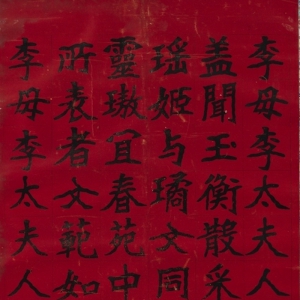 李母李太夫人
盖聞玉衡散采
瑶姬与璚文同
靈璈冝春苑中
所袁者文範如
李母李太夫人